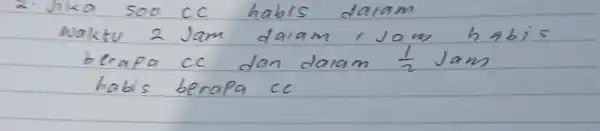 2. Jika 500 cc habis dalam
Waktu 2 Jam dalam 1 Jam habis
berapa cc dan dalam 1/2 Jam
habis berapa cc